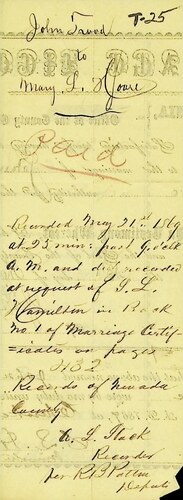 T-25
John Trood
to
Mary L. Hoare
Paid
Recorded May 21st 1869
at 25 min: past 9 o'clk
A.M. and duly recorded
at request of T. L.
Hamilton in Book
No. 1 of Marriage Certif-
=icates on pages
3132
Records of Nevada
County
A. L. Stack
Recorder
per R B Patton
Deputy